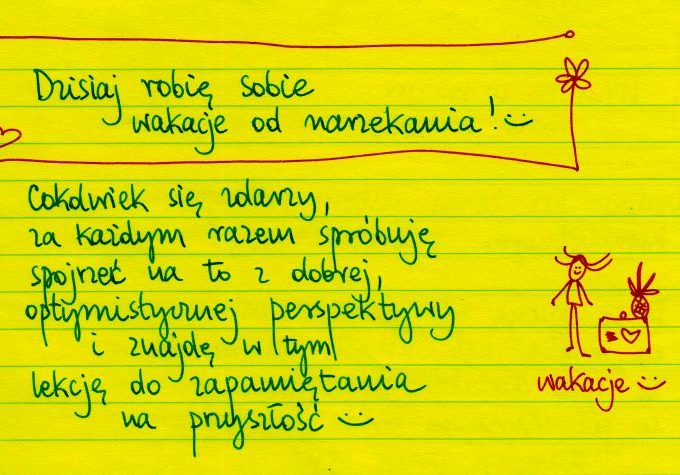 Dzisiaj robię sobie
wakacje od narzekania! :)
Cokolwiek się zdarzy,
za każdym razem spróbuję
spojrzeć na to z dobrej,
optymistycznej perspektywy
i znajdę w tym
lekcję do zapamiętania
na przyszłość :)
wakacje :)